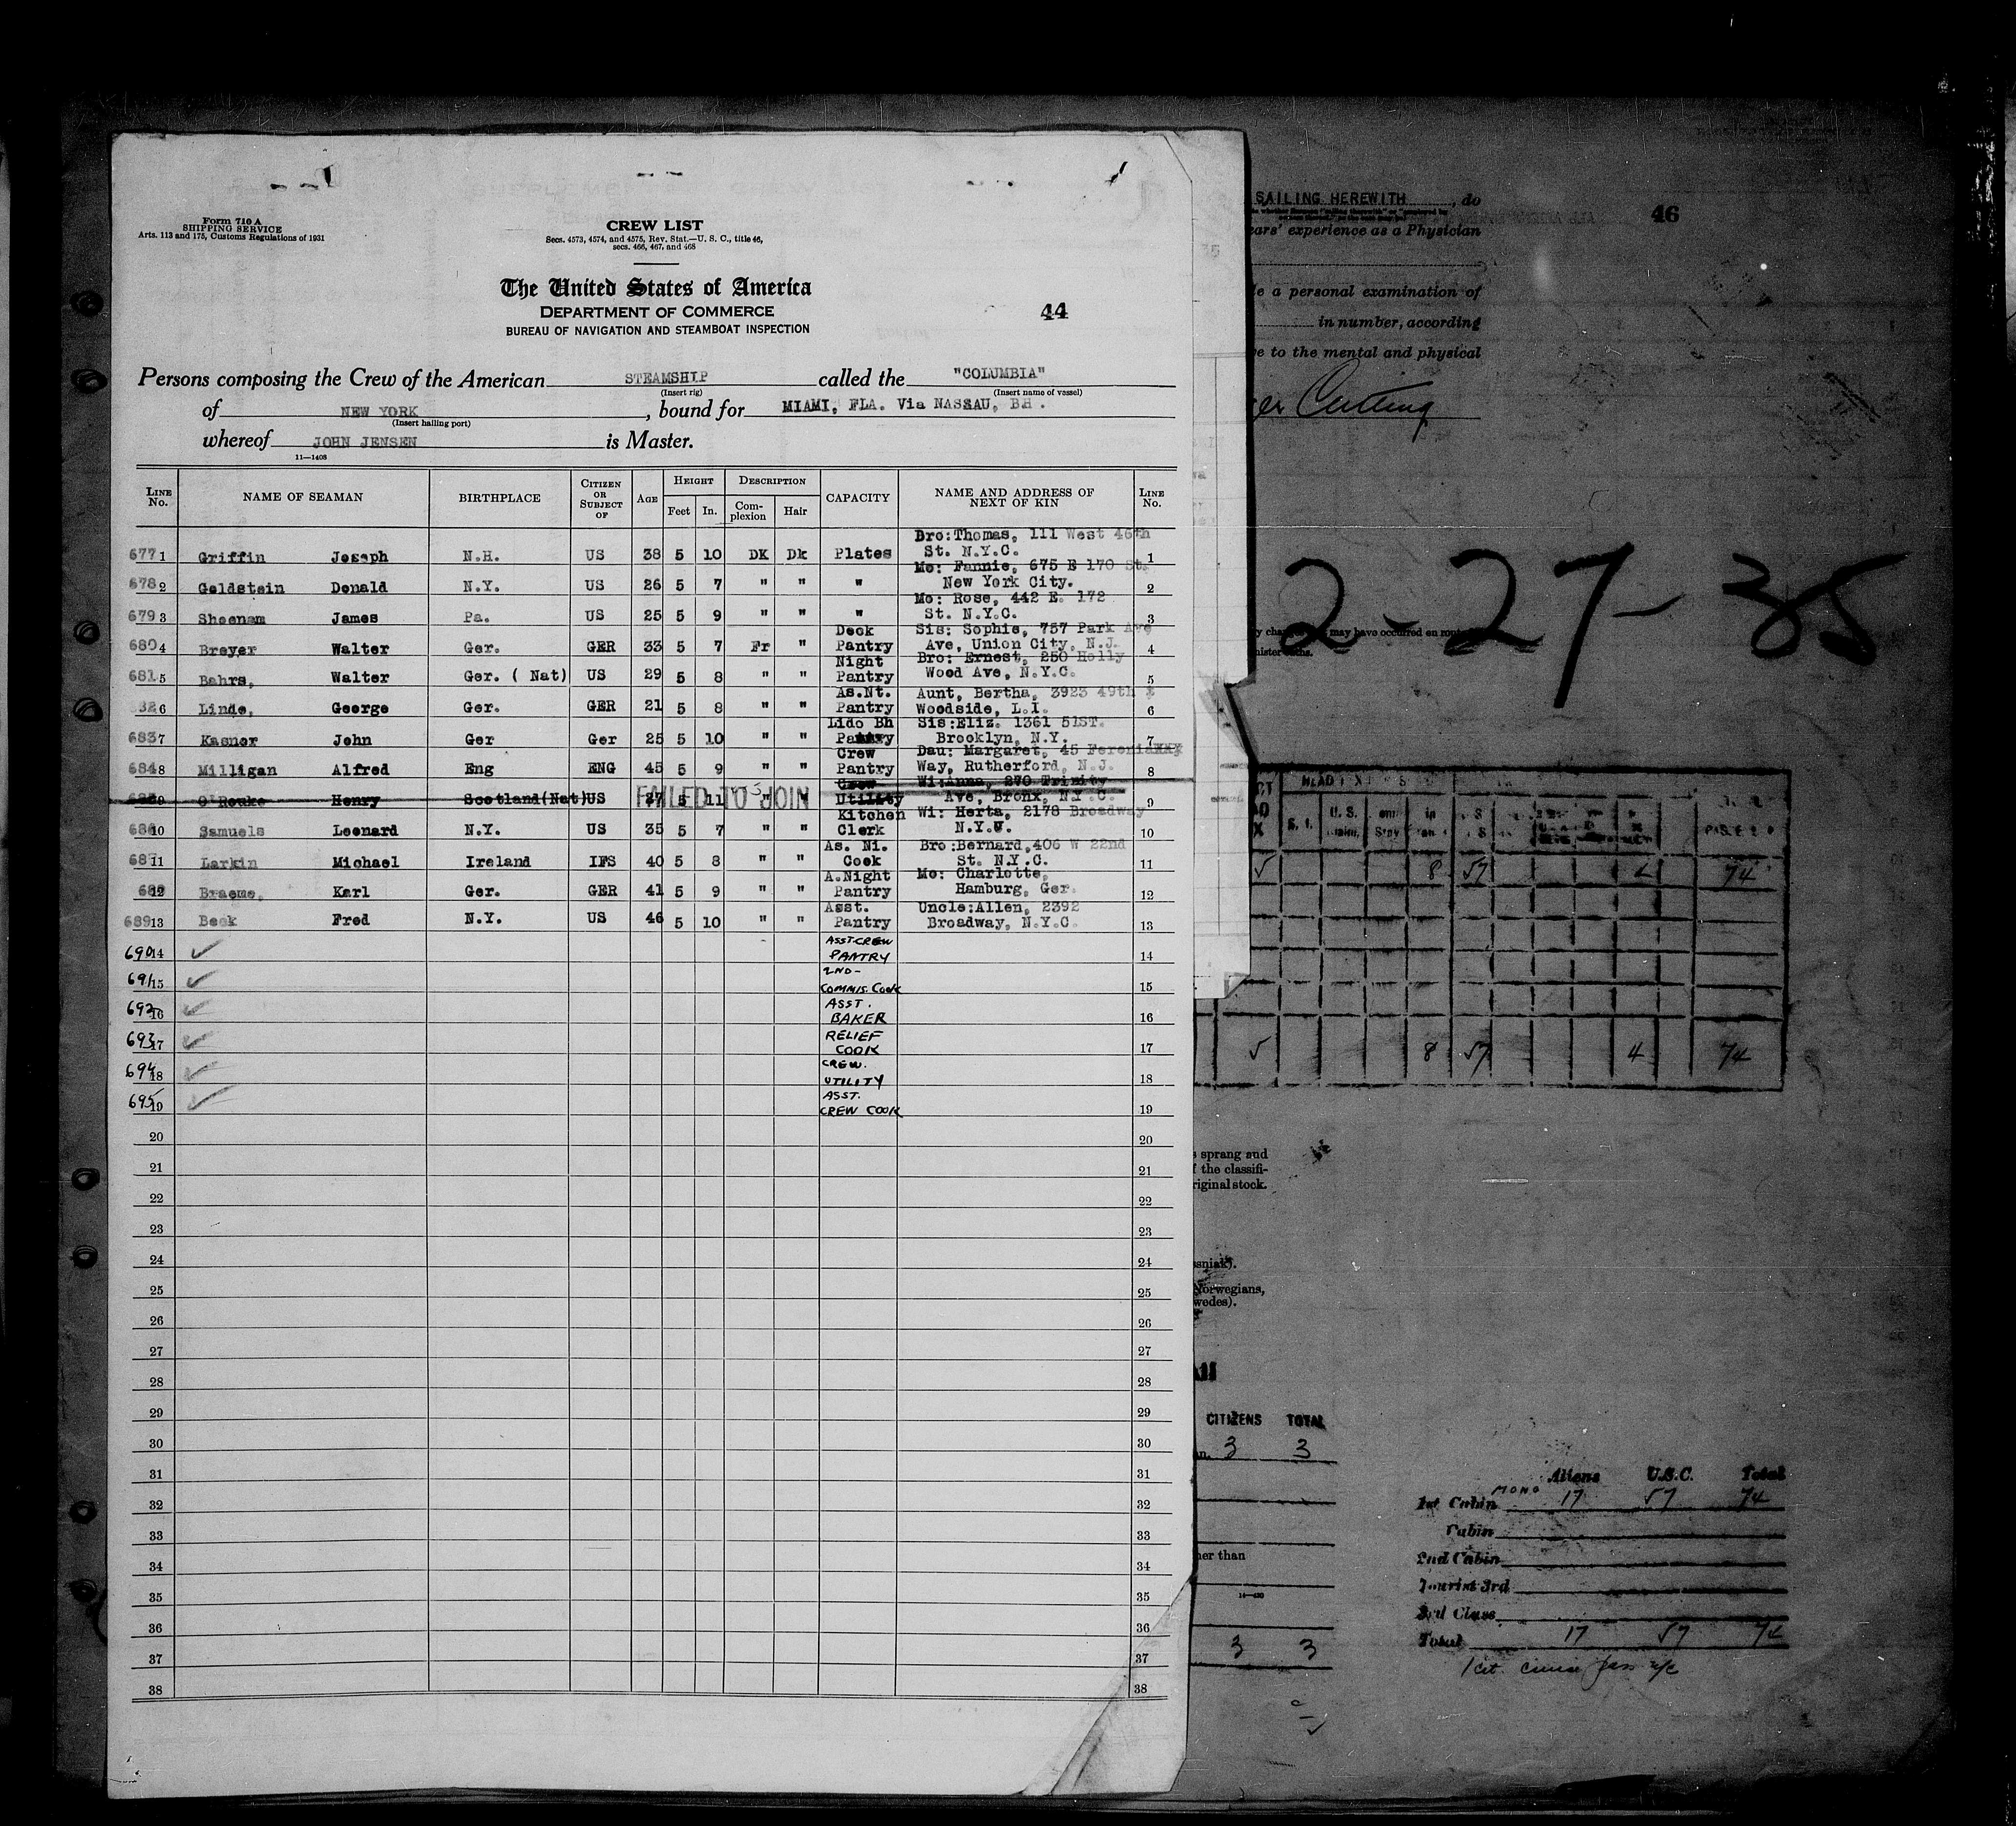 Form 710 A
SHIPPING SERVICE
Arts. 113 and 175, Customs Regulations of 1931
CREW LIST
Secs. 4573, 4574, and 4575, Rev. Stat.—U. S. C., title 46,
secs. 466, 467, and 468
The United States of America
DEPARTMENT OF COMMERCE
BUREAU OF NAVIGATION AND STEAMBOAT INSPECTION
44
Persons composing the Crew of the American STEAMSHIP called the "COLUMBIA"
(Insert rig) (Insert name of vessel)
of NEW YORK, bound for MIAMI, FLA. Via NASSAU, BH.
(Insert hailing port)
whereof JOHN JENSEN is Master.
11—1408
LINE No. NAME OF SEAMAN BIRTHPLACE CITIZEN OR SUBJECT OF AGE HEIGHT Feet In. DESCRIPTION Complexion Hair CAPACITY NAME AND ADDRESS OF NEXT OF KIN LINE No.
677 1 Griffin Joseph N.H. US 38 5 10 DK Dk Plates Bro:Thomas, 111 West 46th St. N.Y.C. 1
678 2 Goldstein Donald N.Y. US 26 5 7 " " " Mo: Fannie, 675 E 170 St. New York City. 2
679 3 Sheenam James Pa. US 25 5 9 " " " Mo: Rose, 442 E. 172 St. N.Y.C. 3
680 4 Breyer Walter Ger. GER 33 5 7 Fr " Deck Pantry Sis: Sophie, 757 Park Ave Ave, Union City, N.J. 4
681 5 Bahrs, Walter Ger. ( Nat) US 29 5 8 " " Night Pantry Bro: Ernest, 250 Holly Wood Ave, N.Y.C. 5
82 6 Linde, George Ger. GER 21 5 8 " " As.Nt. Pantry Aunt, Bertha, 3923 49th Woodside, L.I. 6
683 7 Kasner John Ger Ger 25 5 10 " " Lido Bh Pantry Sis:Eliz. 1361 51ST. Brooklyn, N.Y. 7
684 8 Milligan Alfred Eng ENG 45 5 9 " " Crew Pantry Dau: Margaret, 45 Way, Rutherford, N.J. 8
9 O'Rouke Henry Scotland(Nat) US 27 5 11 " Crew Utility Wi:Anna, 270 Trinity Ave, Bronx, N.Y.C. 9
FAILED TO JOIN
686 10 Samuels Leonard N.Y. US 35 5 7 " " Kitchen Clerk Wi: Herta, 2178 Broadway 10
687 11 Larkin Michael Ireland IFS 40 5 8 " " As. Ni. Cook Bro:Bernard,406 W 22nd St. N.Y.C. 11
12 Braeme, Karl Ger. GER 41 5 9 " " A.Night Pantry Mo: Charlotte, Hamburg, Ger. 12
689 13 Beck Fred N.Y. US 46 5 10 " " Asst. Pantry Uncle:Allen, 2392 Broadway, N.Y.C. 13
690 14 ✓ ASST-CREW PANTRY 14
691 15 ✓ 2ND- COMMIS. COOK 15
692 16 ✓ ASST. BAKER 16
693 17 ✓ RELIEF COOK 17
694 18 ✓ CREW. UTILITY 18
695 19 ✓ ASST. CREW COOK 19
20 20
21 21
22 22
23 23
24 24
25 25
26 26
27 27
28 28
29 29
30 30
31 31
32 32
33 33
34 34
35 35
36 36
37 37
38 38
SAILING HEREWITH, do
46
ears' experience as a Physician
e a personal examination of
in number, according
e to the mental and physical
Cutting
2-27-35
may have occurred en route
8 57 74
8 57 4 74
sprang and
the classifi-
riginal stock.
Norwegians,
wedes).
CITIZENS TOTAL
3 3
her than
3 3
Aliens U.S.C. Total
1st Cabin MONO 17 57 74
Cabin
2nd Cabin
Tourist 3rd
3rd Class
Total 17 57 74